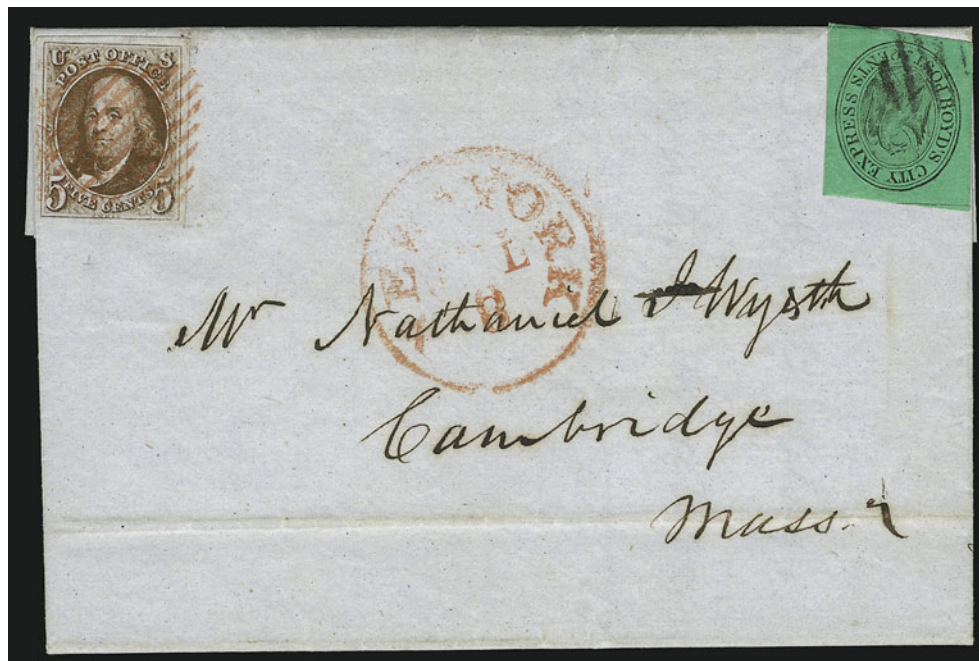 U S
POST OFFICE
5 FIVE CENTS 5
BOYD'S CITY EXPRESS POST
CENTS
YORK
L
8
Mr Nathaniel J Wyeth
Cambridge
Mass.